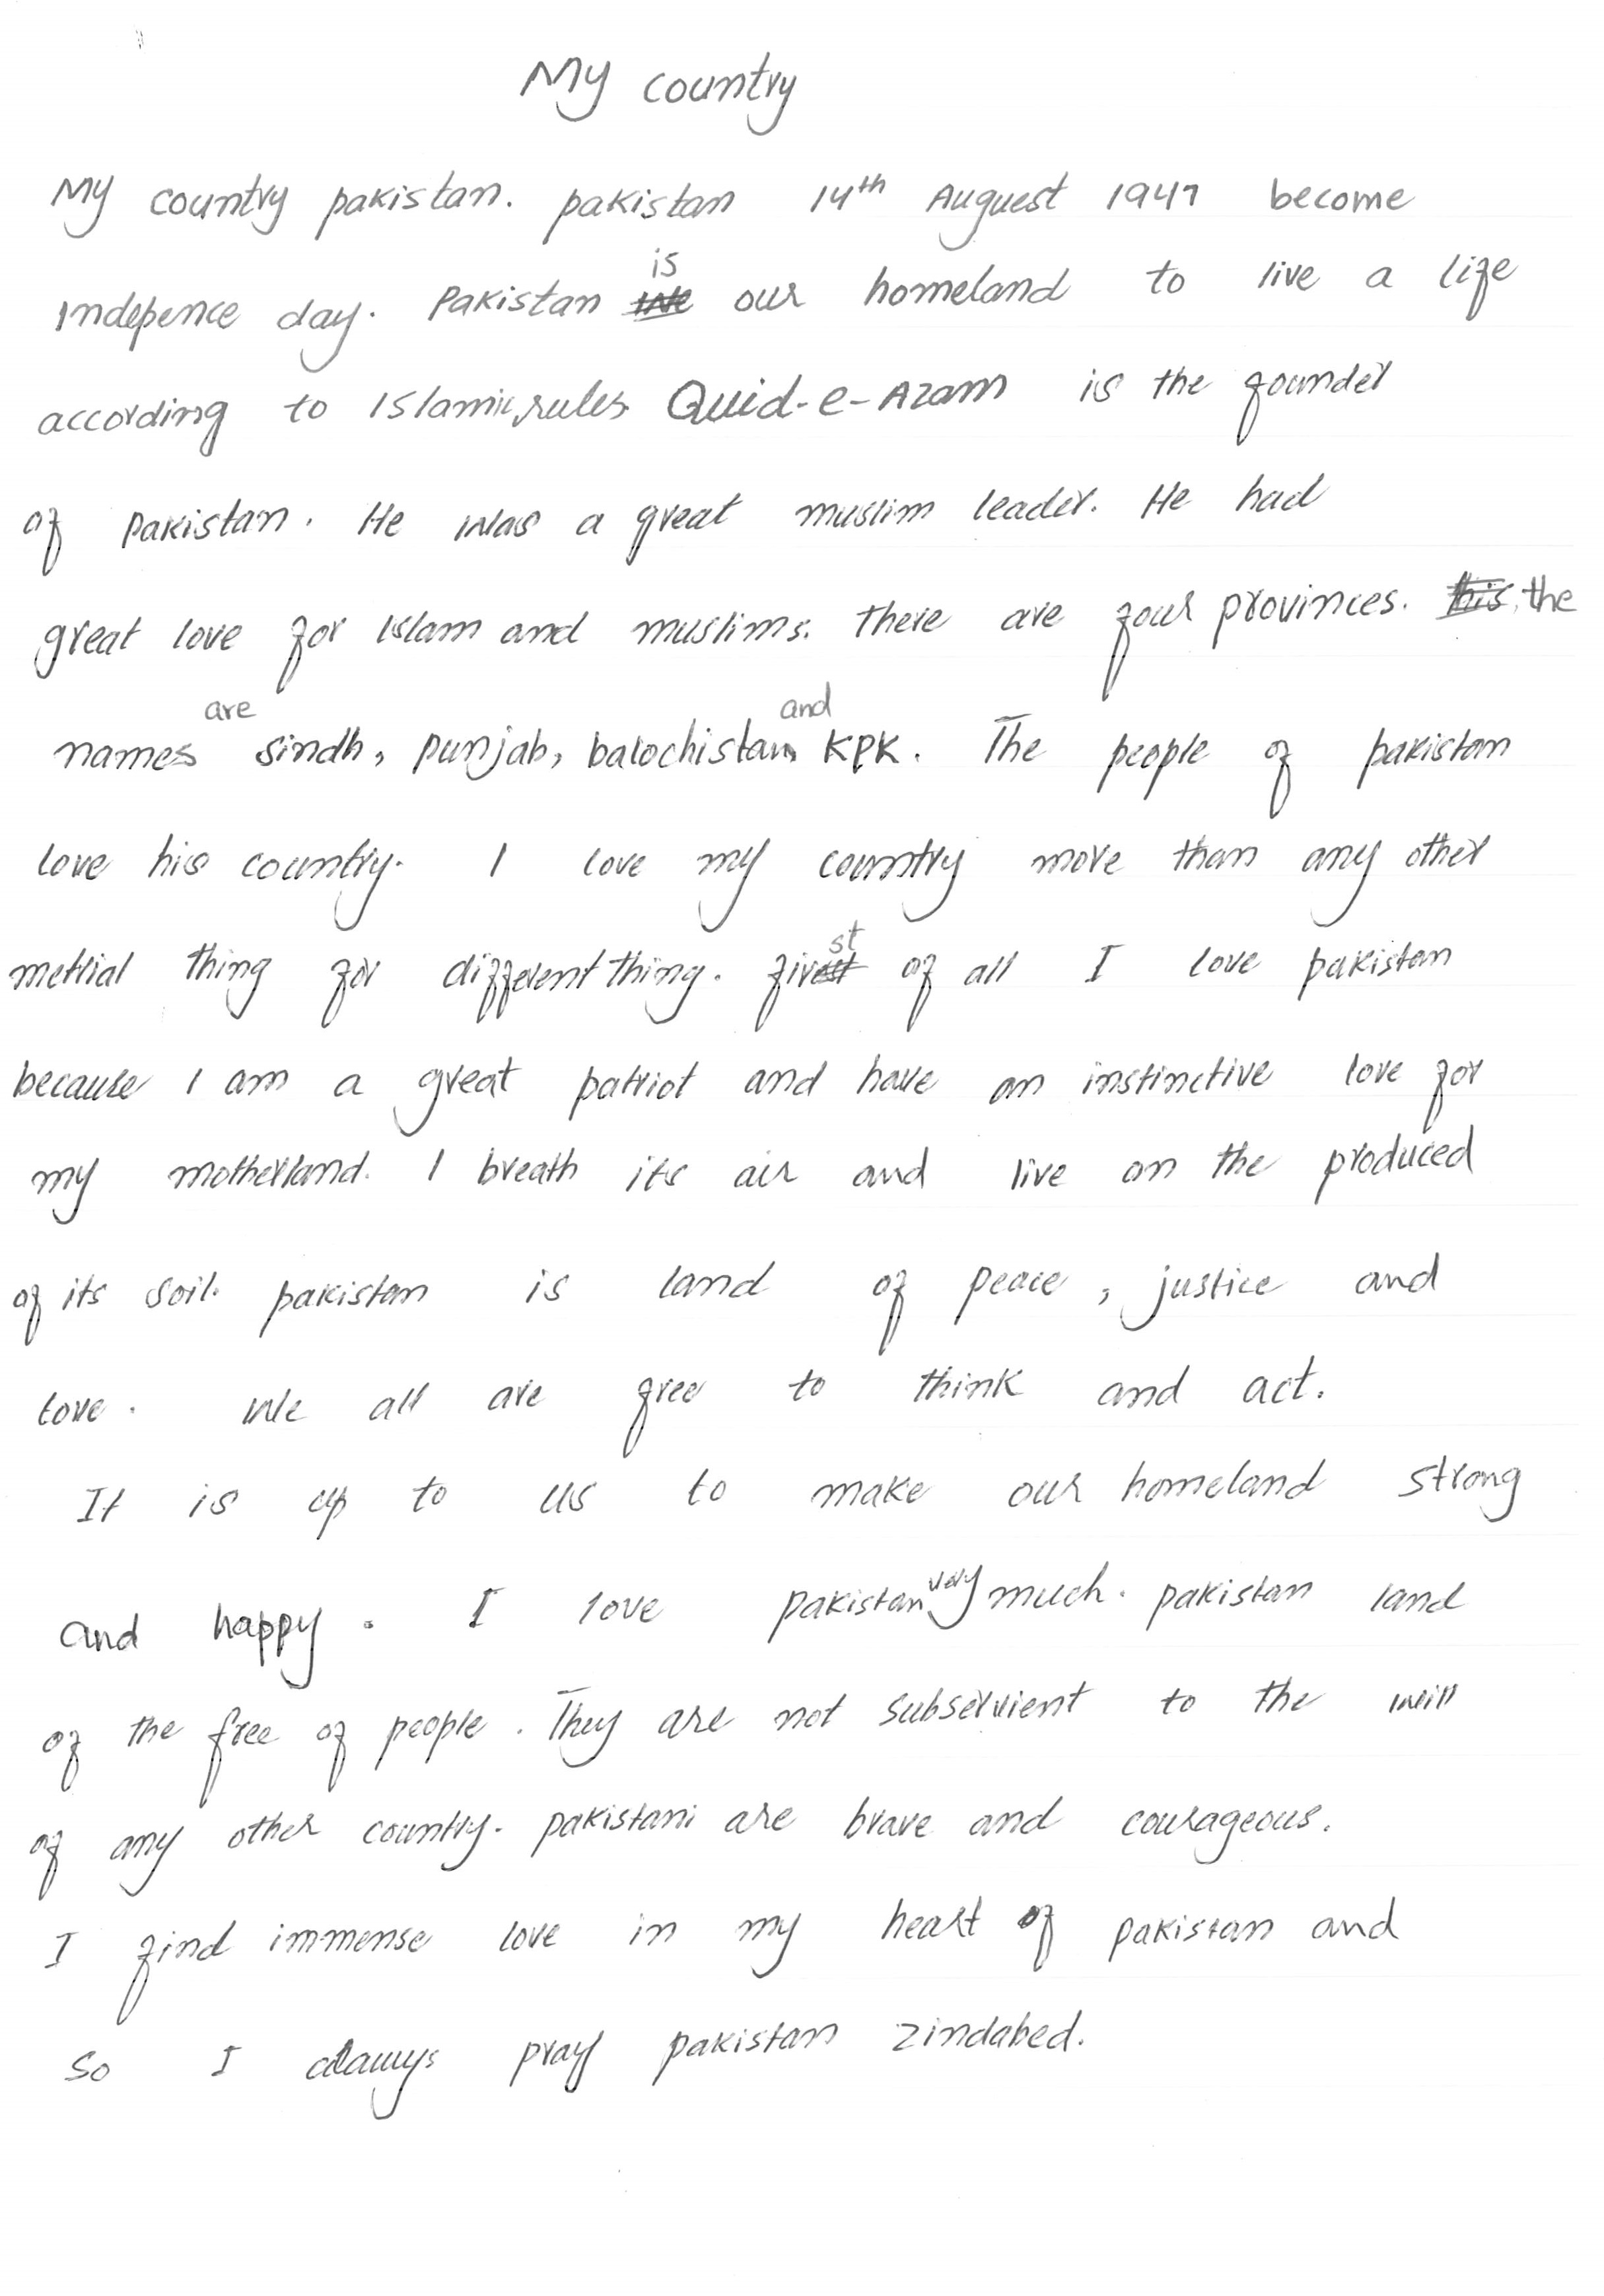 My country
My country pakistan. pakistan 14th Auguest 1947 become
Indepence day. Pakistan is our homeland to live a life
according to Islamic rules Quid-e-Azam is the founder
of pakistan. He was a great muslim leader. He had
great love for Islam and muslims. there are four provinces. the
names are sindh, punjab, balochistan and KPK. The people of pakistan
love his country. I love my country more than any other
metrial thing for different thing. first of all I love pakistan
because I am a great patriot and have an instinctive love for
my motherland. I breath its air and live on the produced
of its soil. pakistan is land of peace, justice and
love. We all are free to think and act.
It is up to us to make our homeland strong
and happy. I love pakistan very much. pakistan land
of the free of people. They are not subservient to the will
of any other country. pakistani are brave and courageous.
I find immense love in my heart of pakistan and
so I alawys pray pakistan zindabed.